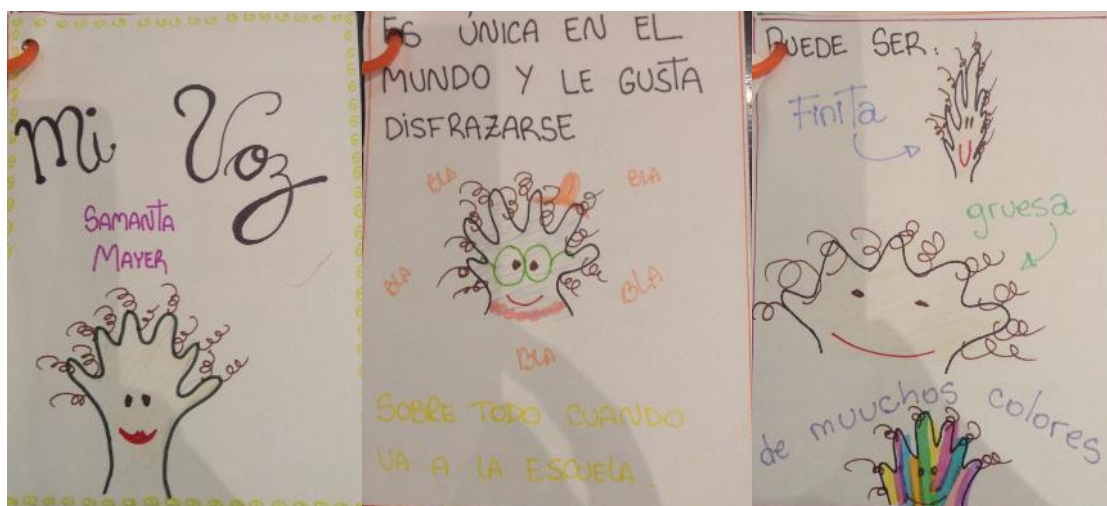 Mi Voz
SAMANTA
MAYER
ES ÚNICA EN EL
MUNDO Y LE GUSTA
DISFRAZARSE
BLA
BLA
BLA
BLA
BLA
SOBRE TODO CUANDO
VA A LA ESCUELA.
PUEDE SER:
Finita
gruesa
de muuchos colores